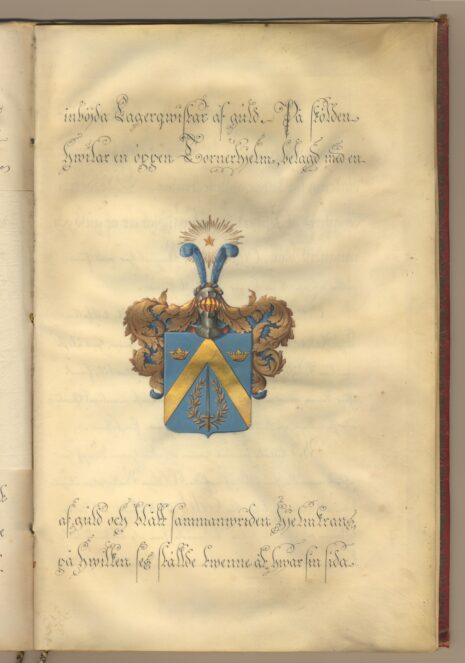 inböjda Lagerqwistar af guld. På skölden
hwilar en öppen Tornerhjelm, belagd med en
af guld och blått sammanwriden Hjelmkrans,
på hwilken ses ställde twenne åt hwar sin sida